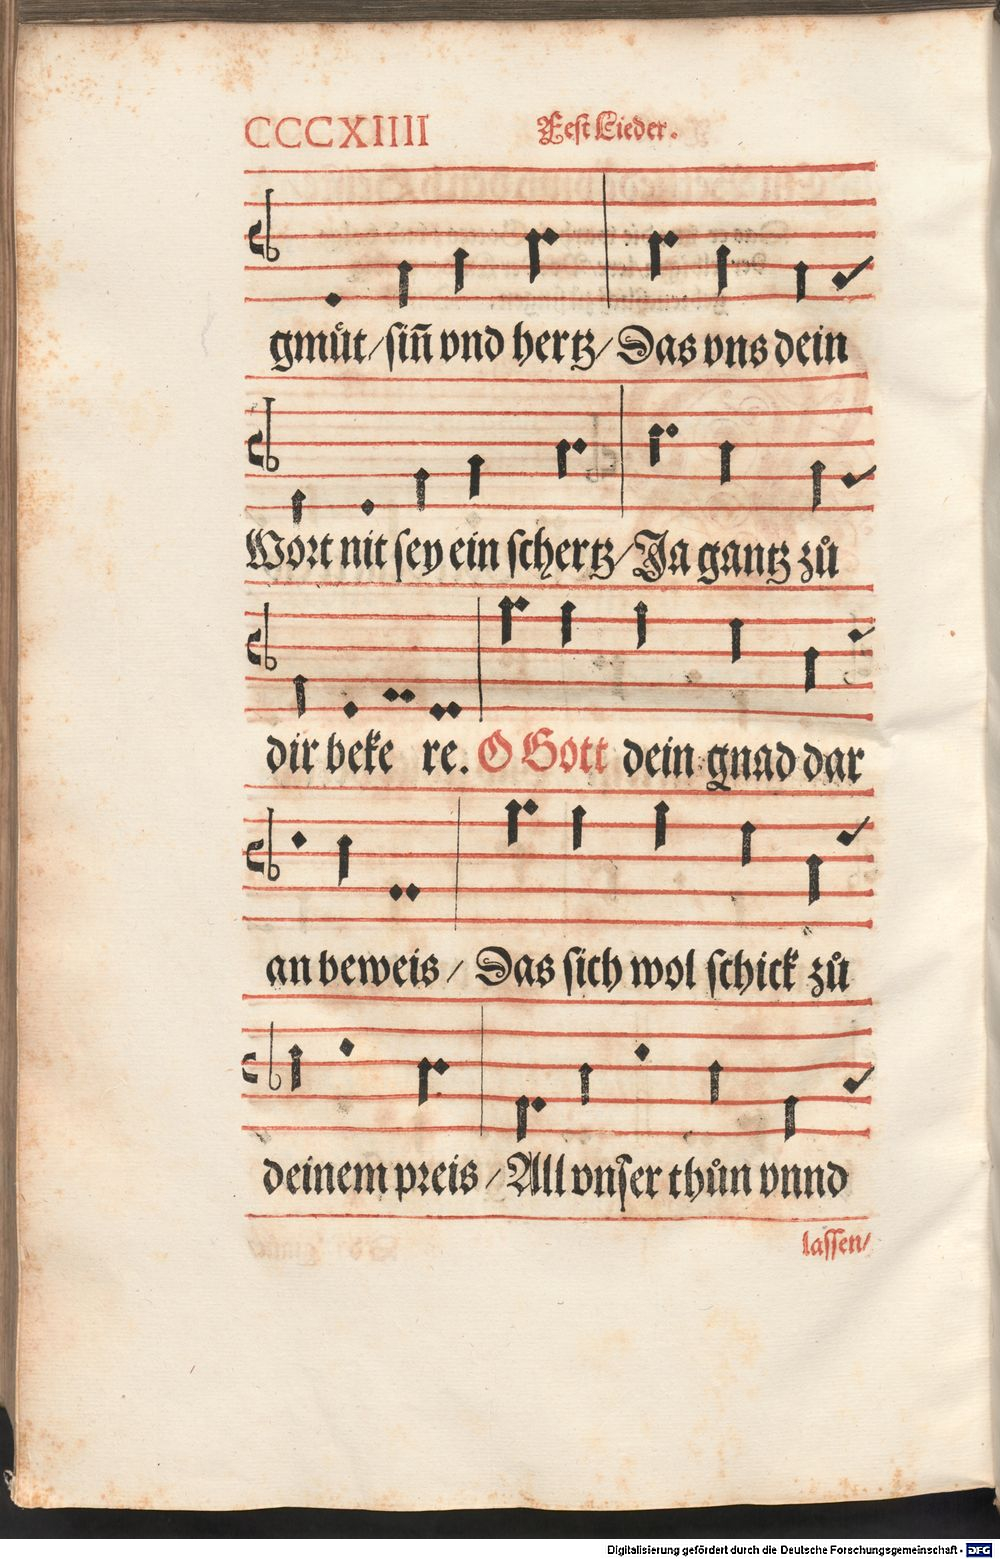 CCCXIIII Fest Lieder.
gmuͤt/ siñ vnd hertz/ Das vns dein
Wort nit sey ein schertz/ Ja gantz zuͦ
dir beke re. O Gott dein gnad dar
an beweis/ Das sich wol schick zuͦ
deinem preis/ All vnser thuͦn vnnd
lassen/
Digitalisierung gefördert durch die Deutsche Forschungsgemeinschaft - DFG